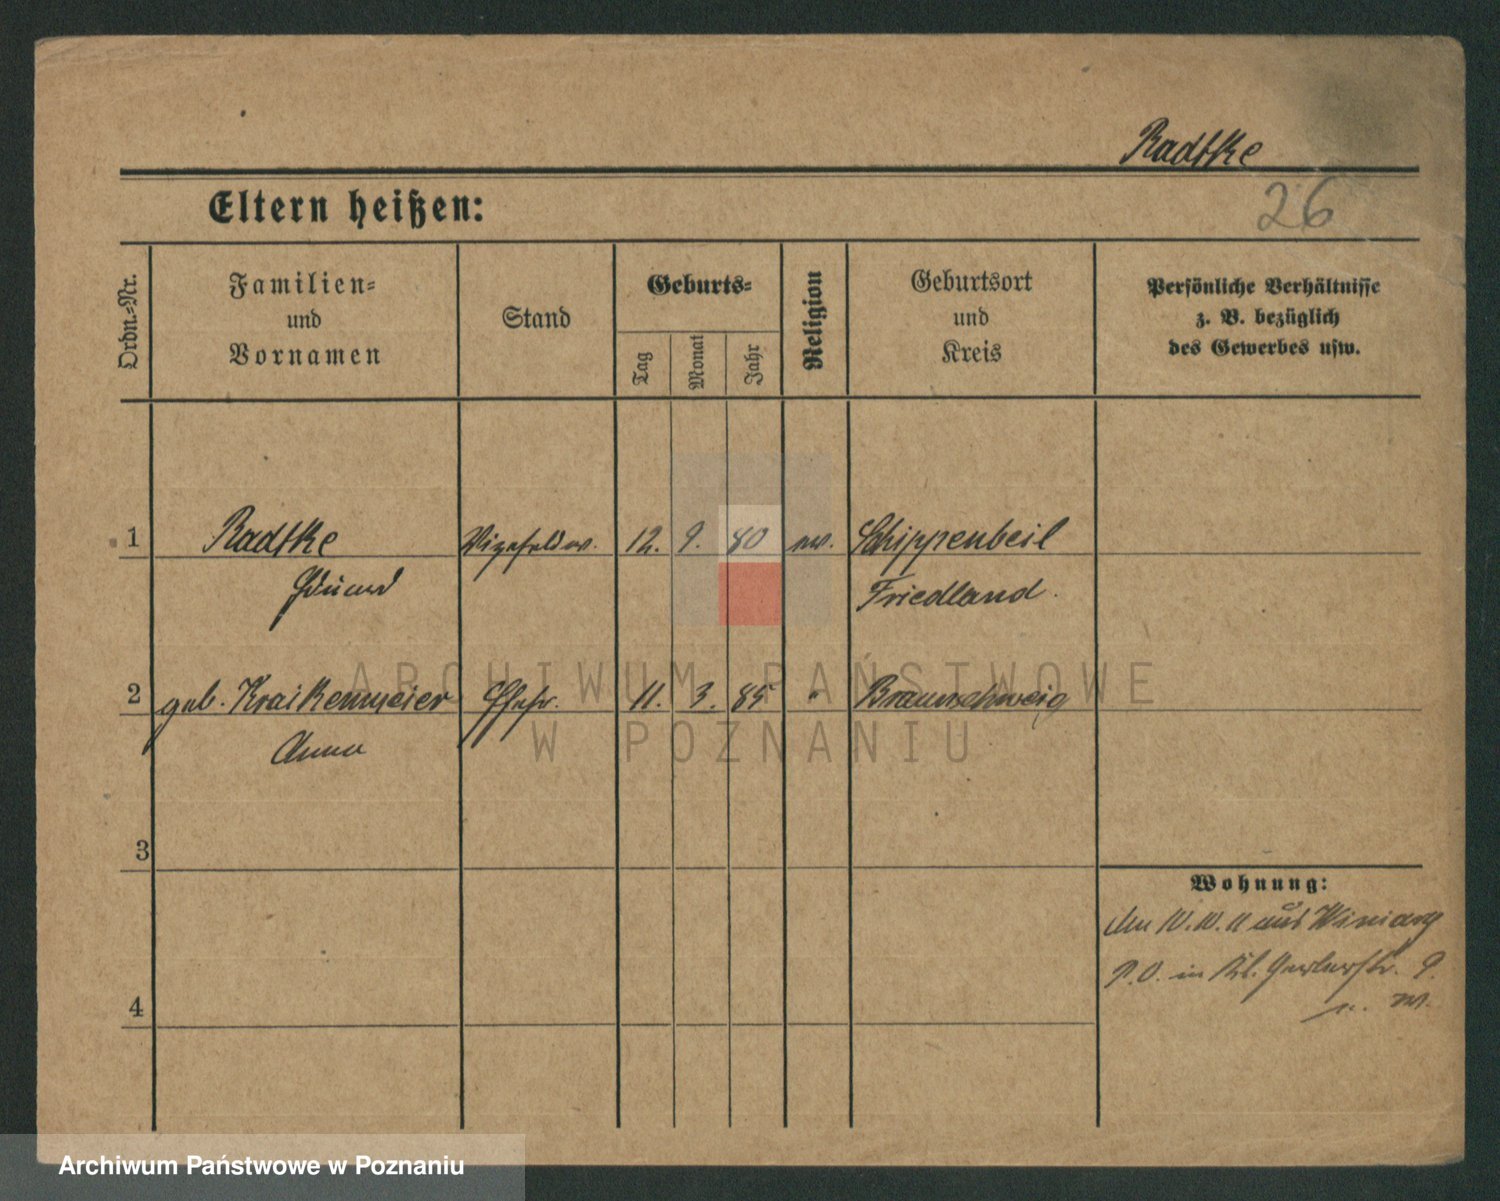 Radtke
26
Eltern heißen:
Ordn.-Nr.
Familien-
und
Vornamen
Stand
Geburts-
Tag
Monat
Jahr
Religion
Geburtsort
und
Kreis
Persönliche Verhältnisse
z. B. bezüglich
des Gewerbes usw.
1 Radtke Vizefeldw. 12. 9. 80 ev. Schippenbeil
Eduard Friedland.
2 geb. Kraikenmeier Ehefr. 11. 3. 85 " Braunschweig
Anna
3
Wohnung:
10. 10. 11 aus Winiary
P.O. in 9.
4
ARCHIWUM PAŃSTWOWE
W POZNANIU
Archiwum Państwowe w Poznaniu